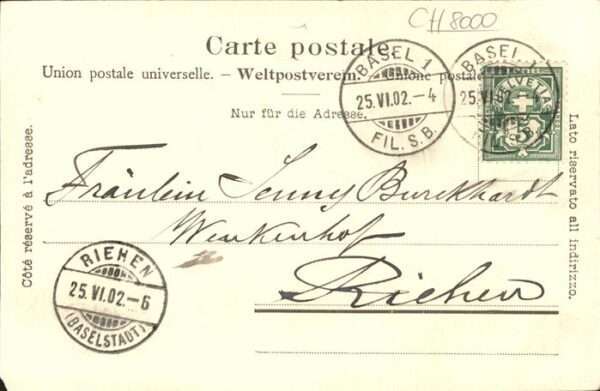 CH 8000
Carte postale.
Union postale universelle. – Weltpostverein. – Unione postale
Nur für die Adresse.
BASEL 1
25.VI.02.–4
FIL. S. B.
BASEL 1
25.VI.02
HELVETIA
5
Côté réservé à l'adresse.
Lato riservato all indirizzo.
Fräulein Jenny Burckhardt
Wenkenhof
Riehen
RIEHEN
25.VI.02.–6
(BASELSTADT)